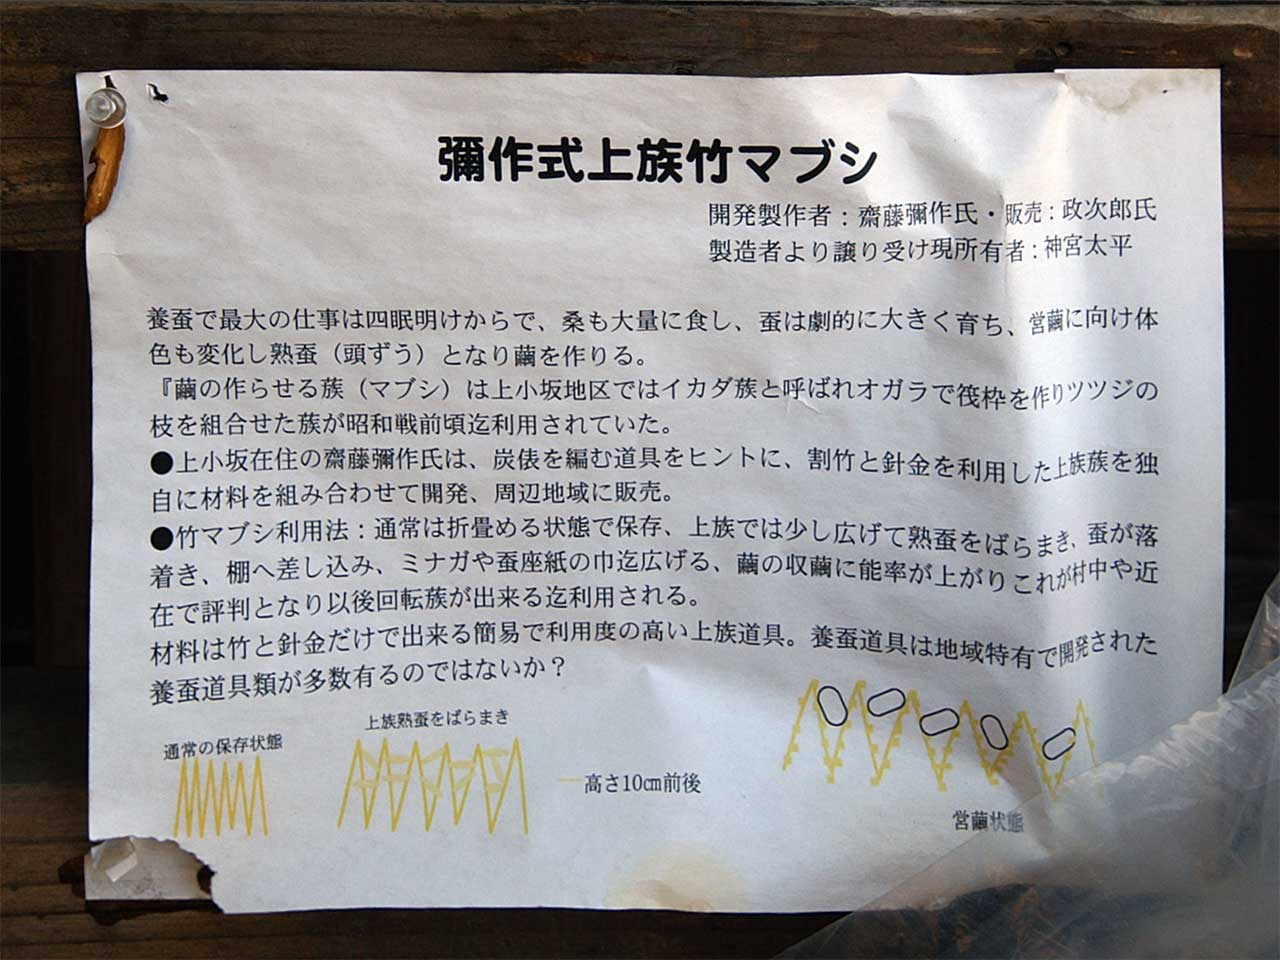 彌作式上族竹マブシ
開発製作者：齋藤彌作氏・販売：政次郎氏
製造者より譲り受け現所有者：神宮太平
養蚕で最大の仕事は四眠明けからで、桑も大量に食し、蚕は劇的に大きく育ち、営繭に向け体
色も変化し熟蚕（頭ずう）となり繭を作りる。
『繭の作らせる族（マブシ）は上小坂地区ではイカダ族と呼ばれオガラで筏枠を作りツツジの
枝を組合せた族が昭和戦前頃迄利用されていた。
●上小坂在住の齋藤彌作氏は、炭俵を編む道具をヒントに、割竹と針金を利用した上族族を独
自に材料を組み合わせて開発、周辺地域に販売。
●竹マブシ利用法：通常は折畳める状態で保存、上族では少し広げて熟蚕をばらまき、蚕が落
着き、棚へ差し込み、ミナガや蚕座紙の巾迄広げる、繭の収繭に能率が上がりこれが村中や近
在で評判となり以後回転族が出来る迄利用される。
材料は竹と針金だけで出来る簡易で利用度の高い上族道具。養蚕道具は地域特有で開発された
養蚕道具類が多数有るのではないか？
通常の保存状態
上族熟蚕をばらまき
高さ10㎝前後
営繭状態